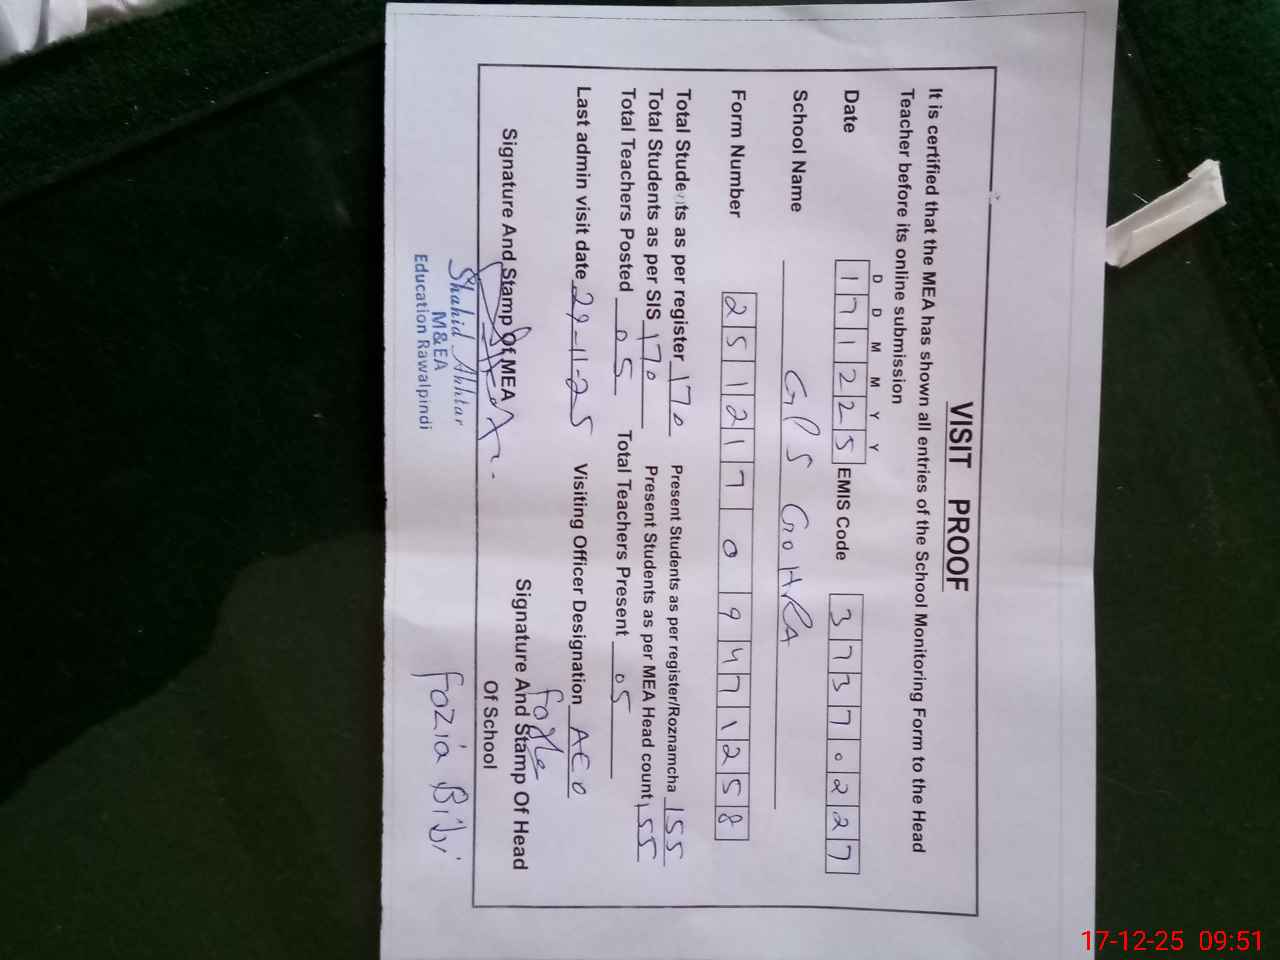 VISIT PROOF
It is certified that the MEA has shown all entries of the School Monitoring Form to the Head
Teacher before its online submission
D D M M Y Y
Date 1 7 1 2 2 5 EMIS Code 3 7 3 7 0 2 2 7
School Name GPS GOHRA
Form Number 2 5 1 2 1 7 0 9 4 7 1 2 5 8
Total Students as per register 170 Present Students as per register/Roznamcha 155
Total Students as per SIS 170 Present Students as per MEA Head count 155
Total Teachers Posted 05 Total Teachers Present 05
Last admin visit date 29-11-25 Visiting Officer Designation AEO
Signature And Stamp Of MEA Signature And Stamp Of Head
Of School
Shahid Akhtar
M&EA
Education Rawalpindi
Fozia Bibi
17-12-25 09:51